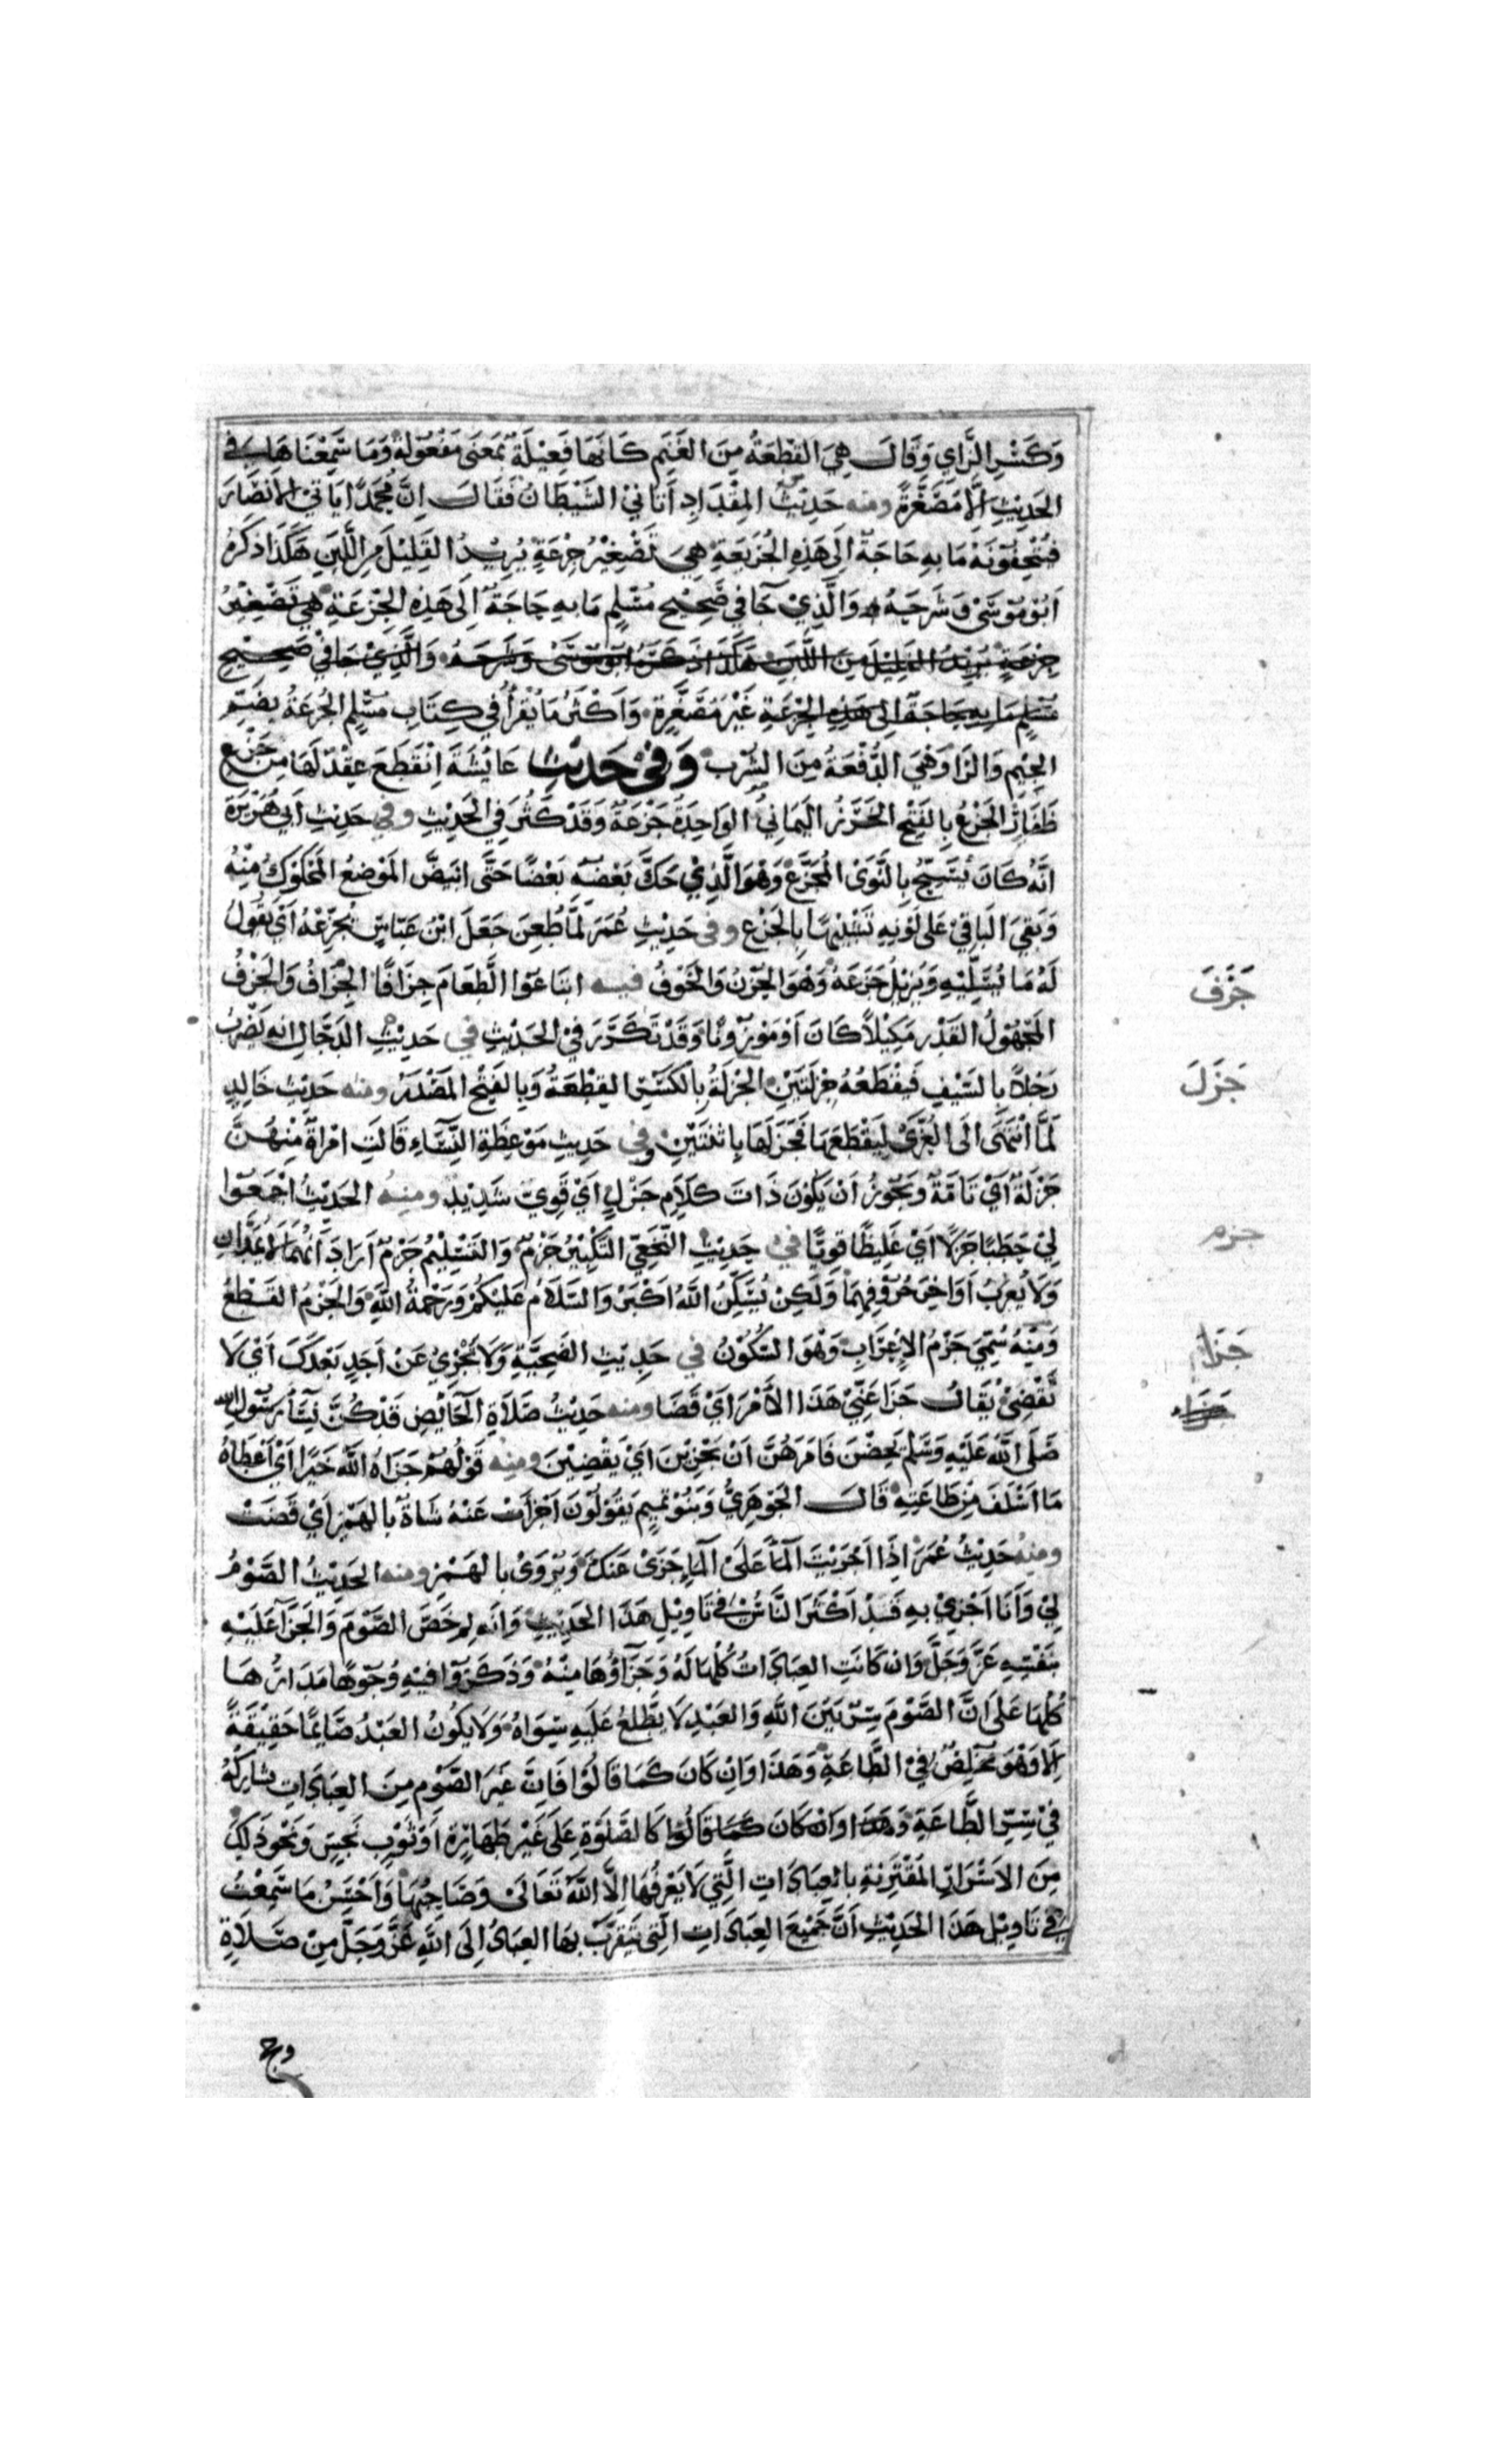 وَكَسْرِ الزَّايِ وَقَالَ هِيَ القِطْعَةُ مِنَ الغَنَمِ كَانَهَا فَعِيْلَةٌ بِمَعْنَى مَفْعُوْلَةٍ وَمَا سَمِعْنَاهَا فِي
الحَدِيْثِ اِلَّا مُصَغَّرَةً ومنه حَدِيْثُ المِقْدَادِ أَتَانِيْ الشَّيْطَانُ فَقَالَ اِنَّ مُحَمَّدًا يَأتِيْ الأَنْصَارَ
فَيُتْحِفُوْنَهُ مَا بِهِ حَاجَةٌ اِلَى هَذِهِ الجُزَيْعَةِ هِيَ تَصْغِيْرُ جِزْعَةٍ يُرِيْدُ القَلِيْلَ مِنَ اللَّبَنِ هَكَذَا ذَكَرَهُ
اَبُوْ مُوْسَى وَشَرَحَهُ وَالَّذِيْ جَا فِي صَحِيْحِ مُسْلِمٍ مَا بِهِ حَاجَةٌ اِلَى هَذِهِ الجِزْعَةِ هي تَصْغِيْرُ
جِزْعَةٍ يُرِيْدُ القَلِيْلَ مِنَ اللَّبَنِ هَكَذَا ذَكَرَهُ ابُوْ مُوْسَى وَشَرَحَهُ وَالَّذِيْ جَا فِي صَحِيْحِ
مُسْلِمٍ مَا بِهِ حَاجَةٌ اِلى هَذِهِ الجِزْعَةِ غَيْرَ مُصَغَّرَةٍ وَاَكْثَرُ مَا يُقْرَأُ فِي كِتَابِ مُسْلِمٍ الجُرْعَةُ بِضَمِّ
الجِيْمِ وَالرَا وَهْيَ الدُّفْعَةُ مِنَ الشُّرْبِ وَفِي حَدِيْثِ عَايِشَةَ اِنْقَطَعَ عِقْدٌ لَهَا مِنْ جَزْعِ
ظَفَارِ الجَزْعُ بِالفَتْحِ الخَرَزُ اليَمَانِيُّ الوَاحِدَةُ جَزْعَةٌ وَقَدْ كَثُرَ فِي الحَدِيْثِ وفي حَدِيْثِ اَبِي هُرَيْرَةَ
اَنَّهُ كَانَ يُسَبِّحُ بِالنَّوَى المُجَزَّعِ وَهْوَ الَّذِيْ حَكَّ بَعْضُهُ بَعْضًا حَتَّى ابْيَضَّ المَوْضِعُ المَحْكُوْكُ مِنْهُ
وَبَقِيَ البَاقِيْ عَلَى لَوْنِهِ تَشْبِيْهًا بِالجَزْعِ وفي حَدِيْثِ عُمَرَ لَمَّا طُعِنَ جَعَلَ ابْنُ عَبَّاسٍ يُجَزِّعُهُ اَيْ يَقُوْلُ
لَهُ مَا يُسَلِّيْهِ وَيُزِيْلُ جَزَعَهُ وَهْوَ الحُزْنُ وَالخَوْفُ فيه ابْتَاعُوا الطَّعَامَ جِزَافًا الجِزَافُ وَالجَزْفُ
جَزَفَ
المَجْهُوْلُ القَدْرِ مَكِيْلًا كَانَ اَوْ مَوْزُوْنًا وَقَدْ تَكَرَّرَ فِيْ الحَدِيْثِ في حَدِيْثِ الدَّجَّالِ انه يَضْرِبُ
رَجُلًا بِالسَّيْفِ فَيَقْطَعُهُ جِزْلَتَيْنِ الجِزْلَةُ بِالكَسْرِ القِطْعَةُ وَبِالفَتْحِ المَصْدَرُ ومنه حَدِيْثُ خَالِدٍ
جَزَلَ
لَمَّا انْتَهَى اِلَى العُزَّى لِيَقْطَعَهَا فَجَزَلَهَا بِاثْنَتَيْنِ وفي حَدِيْثِ مَوْعِظَةِ النِّسَاءِ قَالَتِ امْرَاَةٌ مِنْهُنَّ
جَزْلَةٌ اَيْ تَامَّةٌ وَيَجُوْزُ اَنْ يَكُوْنَ ذَاتَ كَلَامٍ جَزْلٍ اَيْ قَوِيٍّ شَدِيْدٍ ومنه الحَدِيْثُ اجْمَعُوْا
لِيْ حَطَبًا جَزْلًا اَيْ غَلِيْظًا قَوِيًّا في حَدِيْثِ النَّخَعِيّ التَّكْبِيْرُ جَزْمٌ وَالتَّسْلِيْمُ جَزْمٌ اَرَادَ اَنَّهُمَا لَا يُمَدَّانِ
جزم
وَلَا يُعْرَبُ اَوَاخِرُ حُرُوْفِهِمَا وَلَكِنْ يُسَكَّنُ اللَّهُ اَكْبَرْ وَالسَّلَامُ عَلَيْكُمْ وَرَحْمَةُ اللَّهِ وَالجَزْمُ القَطْعُ
وَمِنْهُ سُمِّيَ جَزْمُ الاِعْرَابِ وَهْوَ السُّكُوْنُ في حَدِيْثِ الضَحِيَّةِ وَلَا تَجْزِيْ عَنْ اَحَدٍ بَعْدَكَ اَيْ لَا
جَزَا
تَقْضِيْ يُقَالُ جَزَا عَنِّيْ هَذَا الأَمْرُ اَيْ قَضَا ومنه حَدِيْثُ صَلَاةِ الحَايِضِ قَدْ كُنَّ نِسَاءُ رَسُوْلِ الله
جزاء
صَلَّى اللَّهُ عَلَيْهِ وَسَلَّمَ يَحِضْنَ فَامَرَهُنَّ اَنْ يَجْزِيْنَ اَيْ يَقْضِيْنَ ومنه قَوْلُهُمْ جَزَاهُ اللَّهُ خَيْرًا اَيْ اَعْطَاهُ
مَا اَسْلَفَ مِنْ طَاعَتِهِ قَالَ الجَوْهَرِيُّ وَبَنُوْ تَمِيْمٍ يَقُوْلُوْنَ اَجْزَأَتْ عَنْهُ شَاةٌ بِالهَمْزِ اَيْ قَضَتْ
ومنه حَدِيْثُ عُمَرَ اِذَا اَجْرَيْتَ المَآءَ عَلَى المَآءِ جَزَى عَنْكَ وَيُرْوَى بِالهَمْزِ ومنه الحَدِيْثُ الصَّوْمُ
لِيْ وَاَنَا اَجْزِيْ بِهِ قَدْ اَكْثَرَ النَّاسُ فِي تَاوِيْلِ هَذَا الحَدِيْثِ وَانَه لِمَ خَصَّ الصَّوْمَ وَالجَزَآ عَلَيْهِ
بِنَفْسِهِ عَزَّ وَجَلَّ وَاِنْ كَانَتِ العِبَادَاتُ كُلُّهَا لَهُ وَجَزَآؤُهَا مِنْهُ وَذَكَرُوْا فِيْهِ وُجُوْهًا مَدَارُهَا
كُلِّهَا عَلَى اَنَّ الصَّوْمَ سِرٌّ بَيْنَ اللَّهِ وَالعَبْدِ لَا يَطَّلِعُ عَلَيهِ سِوَاهُ وَلَا يَكُوْنُ العَبْدُ صَايِمًا حَقِيْقَةً
اِلَّا وَهْوَ مُخْلِصٌ فِيْ الطَّاعَةِ وَهَذَا وَاِنْ كَانَ كَمَا قَالُوْا فَاِنَّ غَيْرَ الصَّوْمِ مِنَ العِبَادَاتِ يشَارِكُهُ
فِيْ سِرِّ الطَّاعَةِ وَهَذَا وَاِنْ كَانَ كَمَا قَالُوْا كَالصَّلوةِ عَلَى غَيْرِ طَهَارَةٍ اَوْ ثَوْبٍ نَجِسٍ وَنَحْوِ ذَلِكَ
مِنَ الاَسْرَارِ المُقْتَرِنَةِ بِالعِبَادَاتِ الَّتِي لَا يَعْرِفُهَا اِلَّا اللَّهُ تَعَالَى وَصَاحِبُهَا وَاَحْسَنُ مَا سَمِعْتُ
فِي تَاوِيْلِ هَذَا الحَدِيْثِ اَنَّ جَمِيْعَ العِبَادَاتِ الَّتِي يَتَقَرَّبُ بِهَا العِبَادُ اِلَى اللَّهِ عَزَّ وَجَلَّ مِنْ صَلَاةٍ
وحج